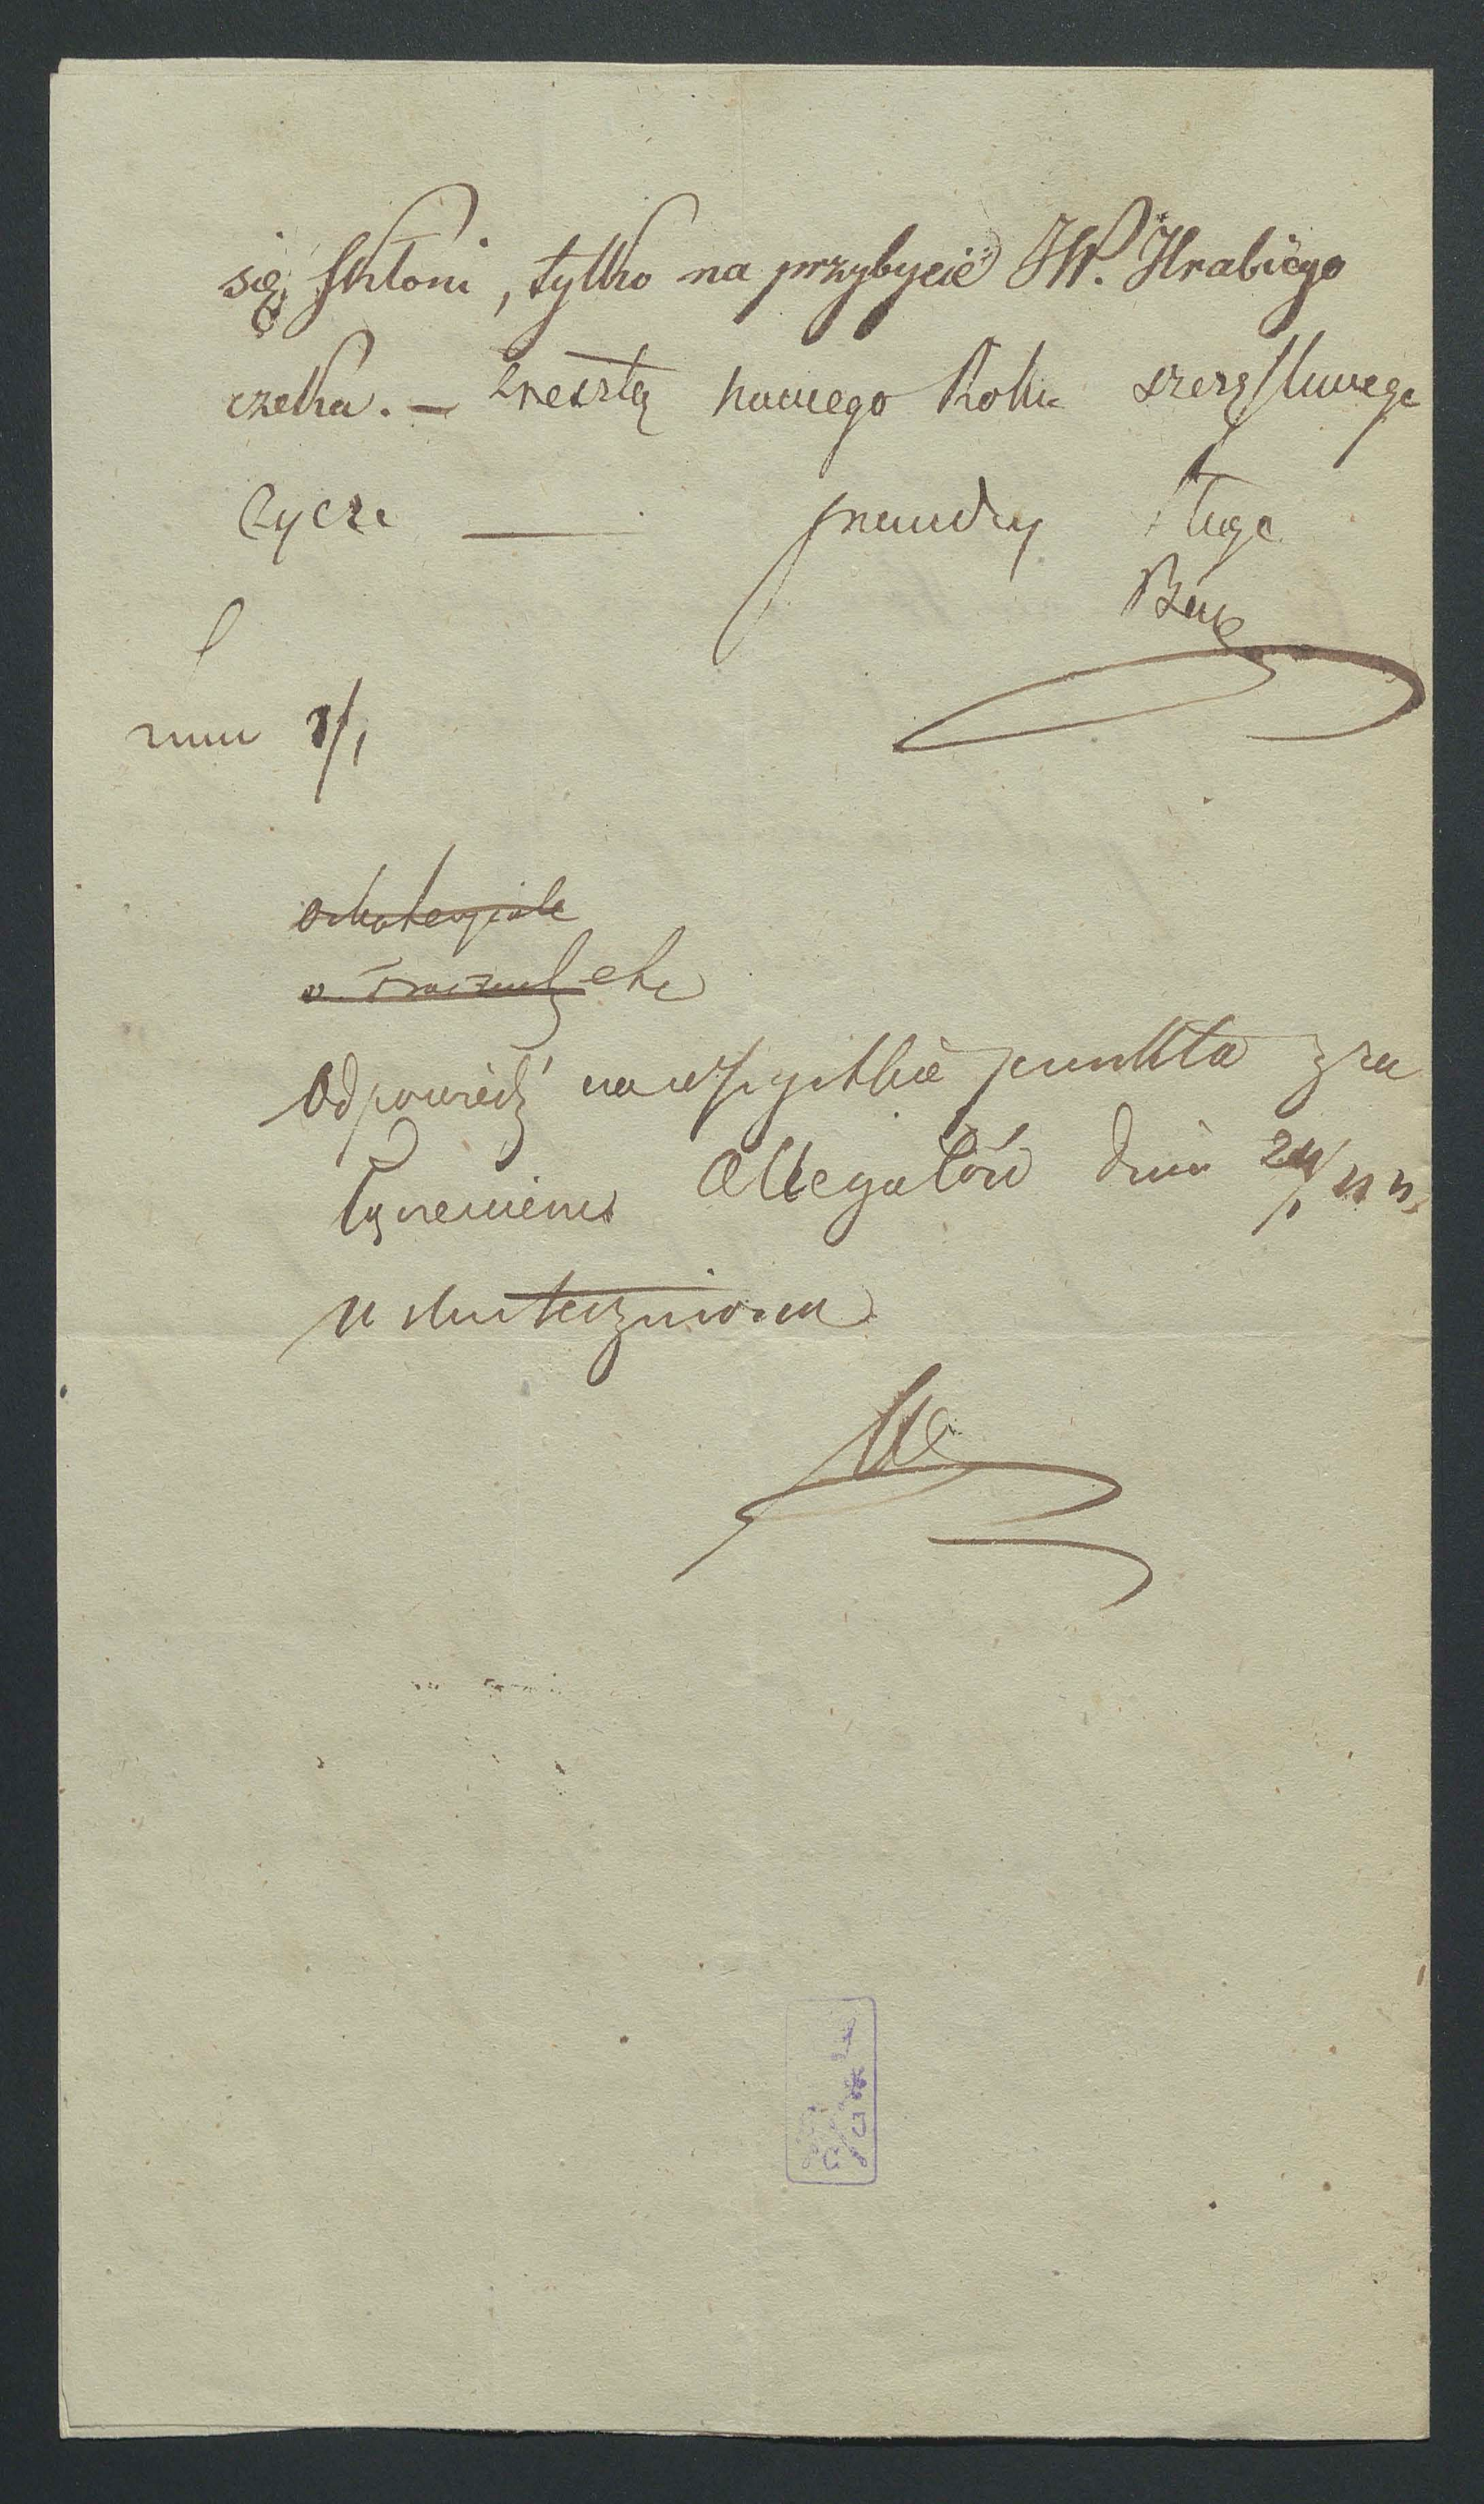 się skłoni, tylko na przybycie JW. Hrabiego
czeka. — Zresztą nowego Roku szczęsliwego
życzę — prawdzy sługa
8/1
Odpowiedź na wszystkie punkta z za
łączeniem Allegatów dnia 24/1
uskuteczniona